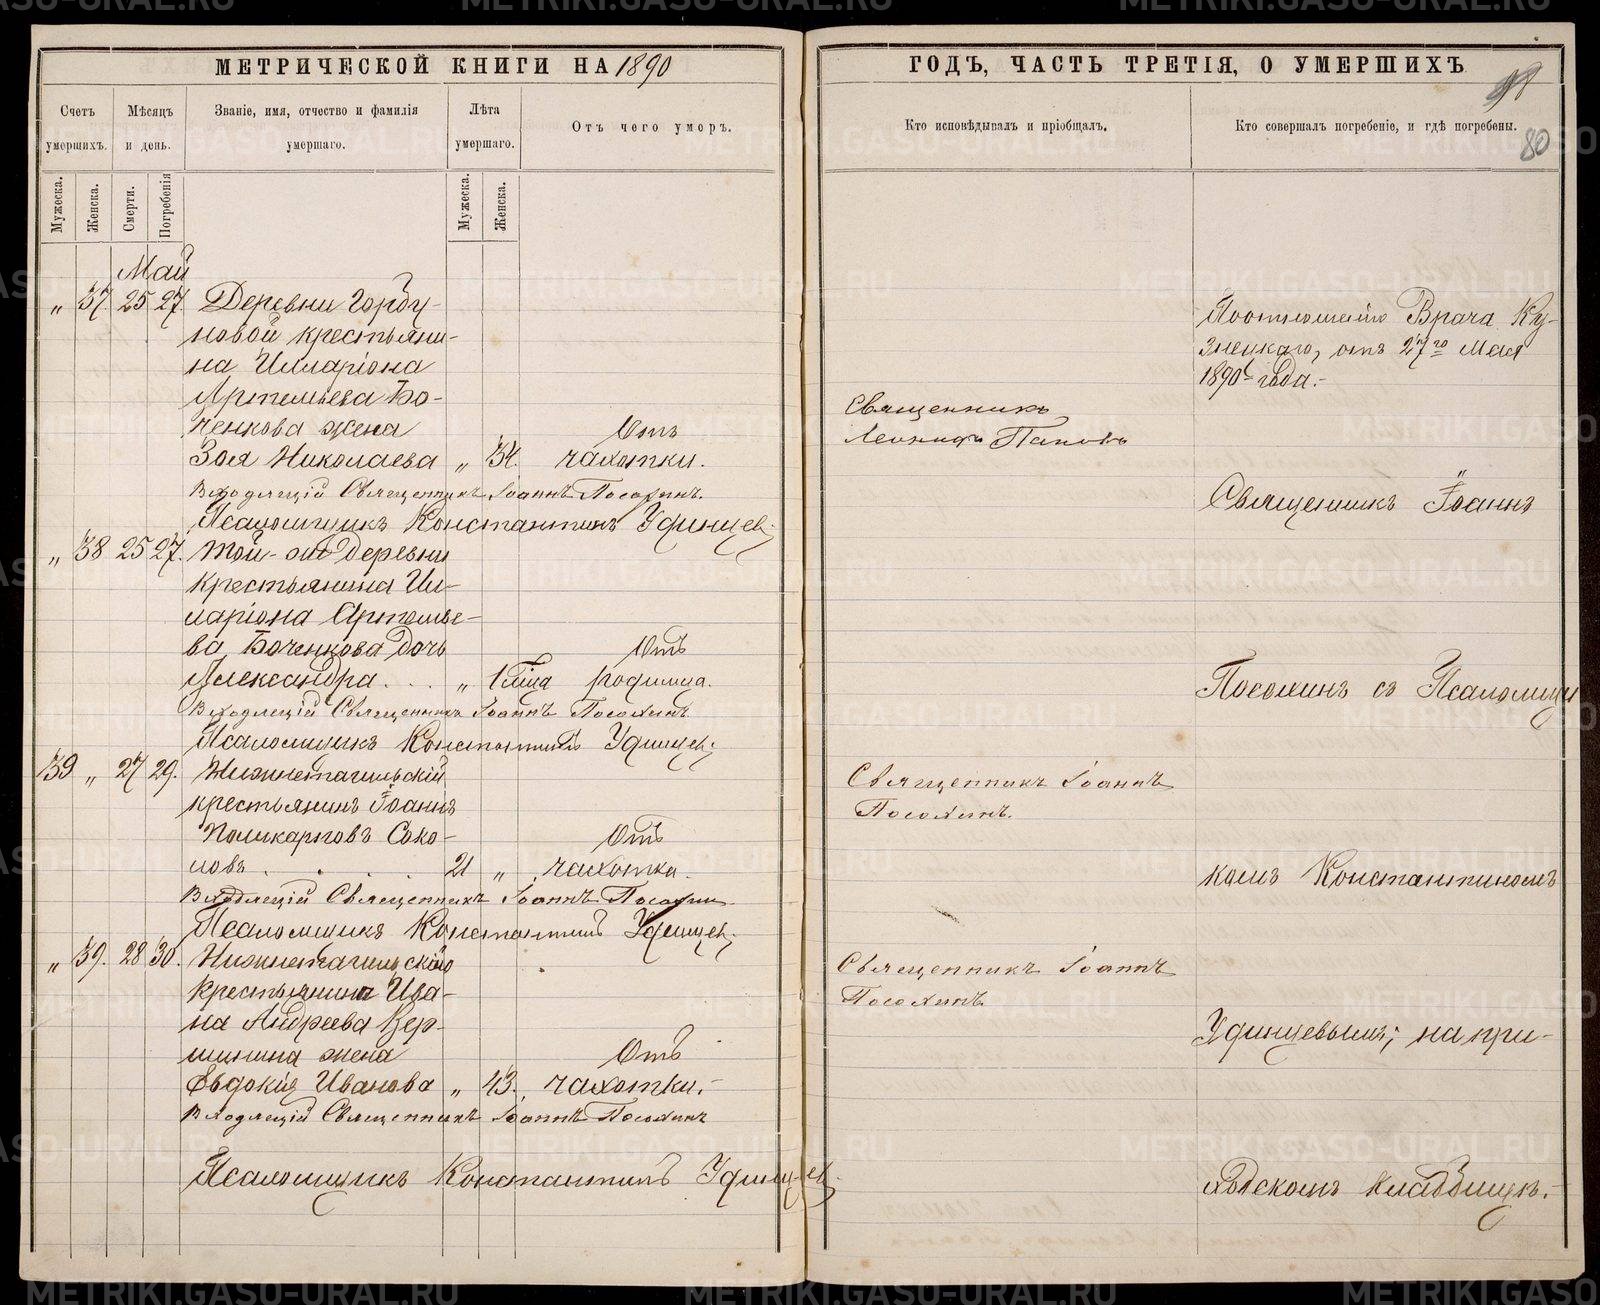 МЕТРИЧЕСКОЙ КНИГИ НА 1890
Счетъ умершихъ.
Мѣсяцъ и день.
Званіе, имя, отчество и фамилія умершаго.
Лѣта умершаго.
Отъ чего умеръ.
Мужеска.
Женска.
Смерти.
Погребенія
Мужеска.
Женска.
Май
„ 37. 25 27. Деревни Горбу-
новой крестьяни-
на Илларіона
Артемьева Бо-
ченкова жена Отъ
Зоя Николаева „ 34. чахотки.
Входящій Священникъ Іоаннъ Посохинъ.
Псаломщикъ Константинъ Удинцев;
„ 38 25 27. Той-же деревни
крестьянина Ил-
ларіона Артемье-
ва Боченкова дочь Отъ
Александра . . . „ 1 родимца.
Входящій Священникъ Іоаннъ Посохинъ
Псаломщикъ Константинъ Удинцев;
39 „ 27 29. Нижнетагильскій
крестьянинъ Іоаннъ
Поликарповъ Соко- Отъ
ловъ . . . . 21 „ чахотка.
Входящій Священникъ Іоаннъ Посохин
Псаломщикъ Константинъ Удинцев;
„ 39. 28 30. Нижнетагильскаго
крестьянина Ива-
на Андреева Вер-
шинина жена Отъ
Евдокія Иванова „ 43. чахотки.-
Входящій Священникъ Іоаннъ Посохинъ
Псаломщикъ Константинъ Удинцев;
ГОДЪ, ЧАСТЬ ТРЕТІЯ, О УМЕРШИХЪ
80
Кто исповѣдывалъ и пріобщалъ.
Кто совершалъ погребеніе, и гдѣ погребены.
По отношенію Врача Ку-
знецкаго, отъ 27го Мая
1890 года.-
Священникъ
Леонидъ Поповъ
Священникъ Іоаннъ
Посохинъ съ Псаломщи
Священникъ Іоаннъ
Посохинъ.
комъ Константиномъ
Священникъ Іоаннъ
Посохинъ.
Удинцевымъ; на при-
ходскомъ кладбищѣ.-
METRIKI.GASO-URAL.RU